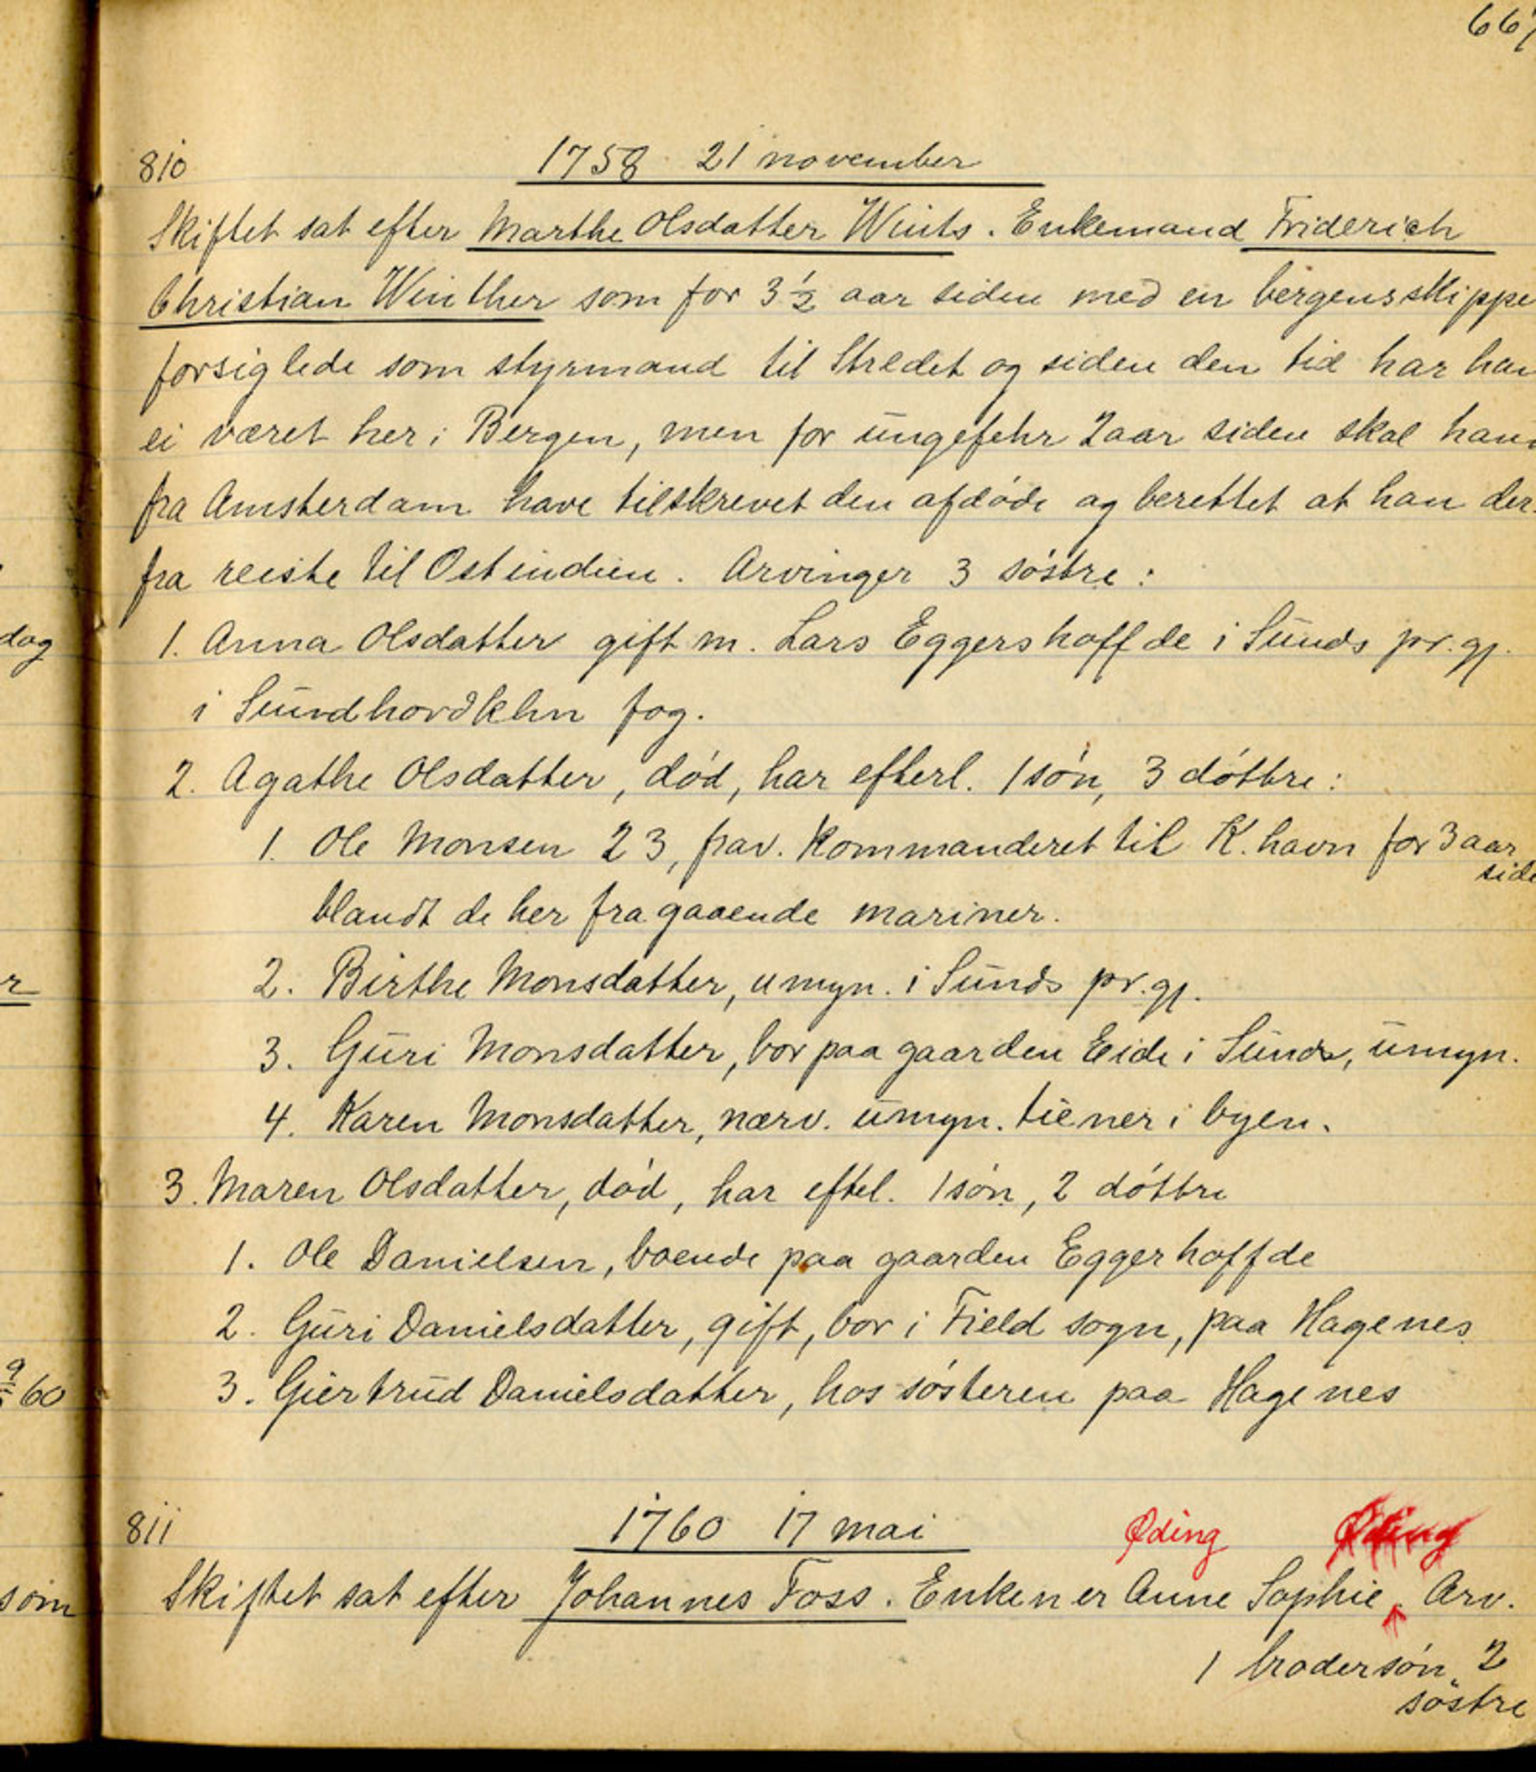 667
810 1758 21 november
Skiftet sat efter Marthe Olsdatter Wints. Enkemand Friderich
Christian Winther som for 3 1/2 aar siden med en bergensskippe
forsiglede som styrmand til Stredet og siden den tid har han
ei været her i Bergen, men for ungefehr 2 aar siden skal han
fra Amsterdam have tilskrevet den afdøde og berettet at han der-
fra reiste til Ostindien. Arvinger 3 søstre:
1. Anna Olsdatter gift m. Lars Eggershoffde i Sunds pr.gj.
i Sundhordlehn fog.
2. Agathe Olsdatter, død, har efterl. 1 søn, 3 døttre:
1. Ole Monsen 23, frav. kommanderet til K.havn for 3 aar
side
blandt de her fra gaaende mariner.
2. Birthe Monsdatter, umyn. i Sunds pr.gj.
3. Guri Monsdatter, bor paa gaarden Eide i Sunds, umyn.
4. Karen Monsdatter, nærv. umyn. tiener i byen.
3. Maren Olsdatter, død, har eftel. 1 søn, 2 døttre
1. Ole Danielsen, boende paa gaarden Eggerhoffde
2. Guri Danielsdatter, gift, bor i Field sogn, paa Hagenes
3. Giertrud Danielsdatter, hos søsteren paa Hagenes
811 1760 17 mai Øding Øding
Skiftet sat efter Johannes Foss. Enken er Anne Sophie. Arv.
1 brodersøn, 2
søstre
dag
r
9
60
som